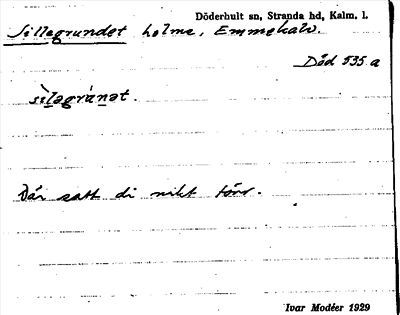 Döderhult sn, Stranda hd, Kalm. l.
Sillegrundet holme, Emmekalv.
Död 535 a
sìlagránat.
Där satt di nikt förr.
Ivar Modéer 1929